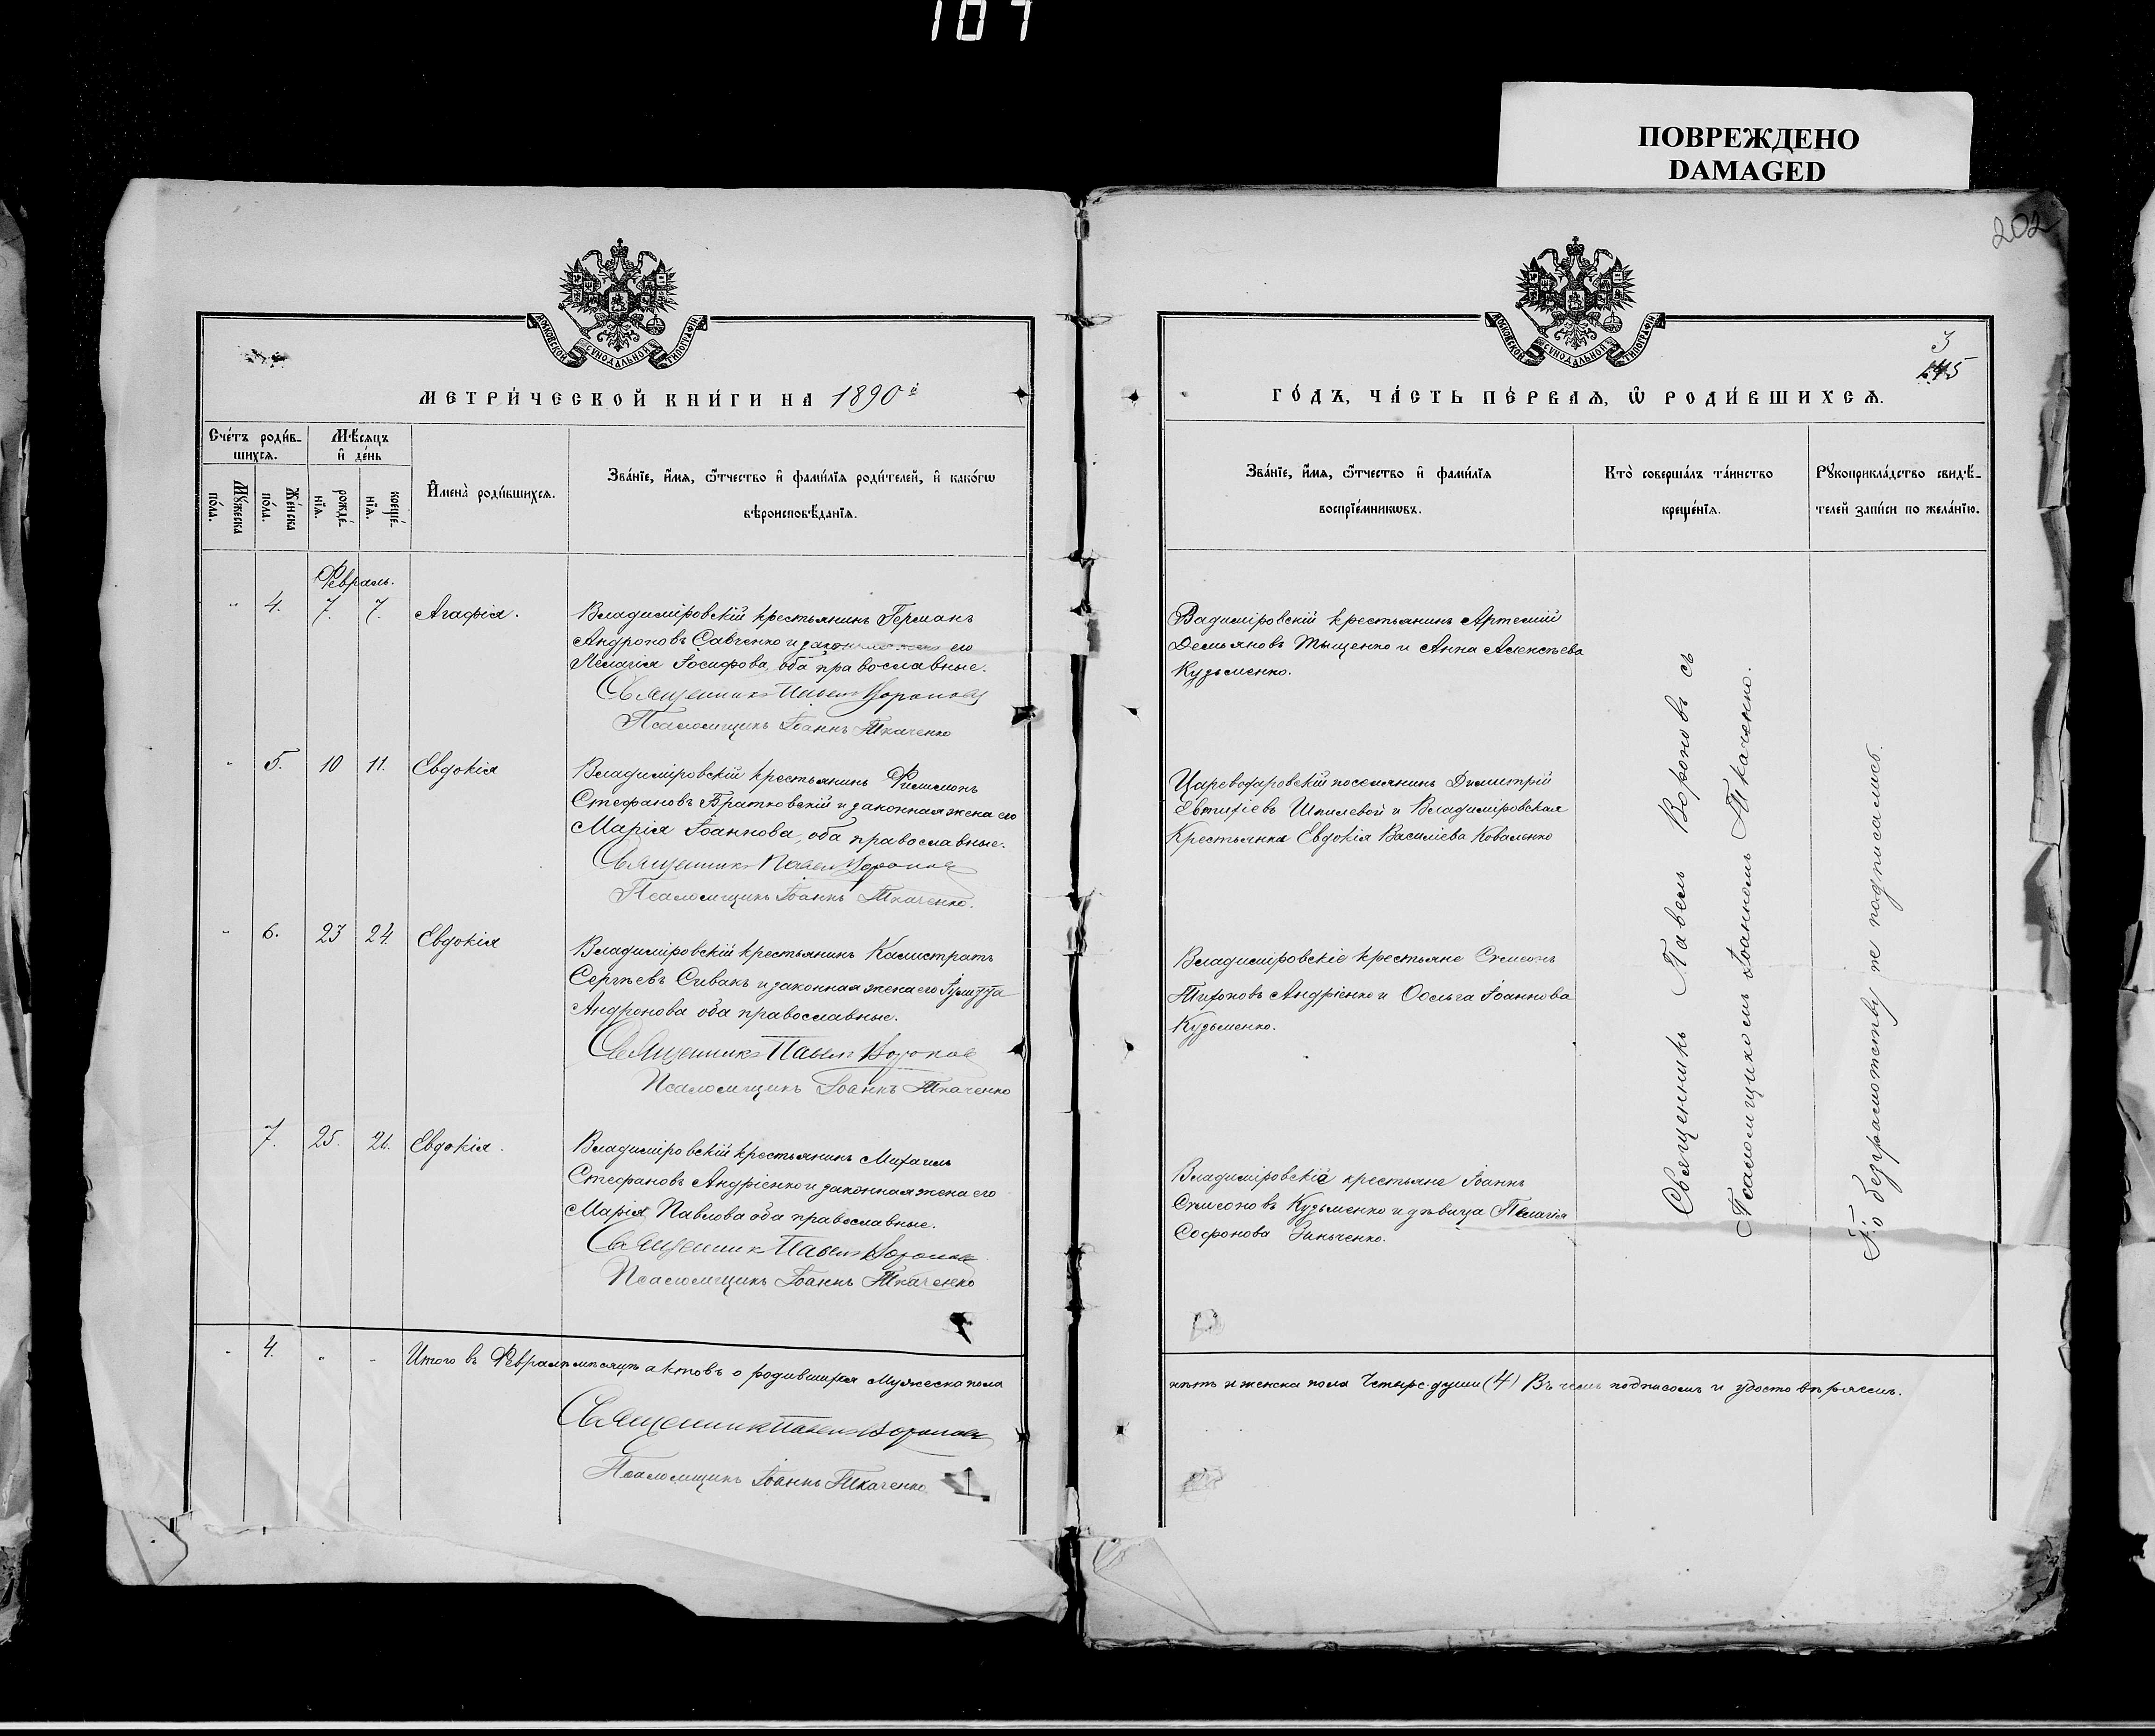 107
ПОВРЕЖДЕНО
DAMAGED
202
МОСКОВСКОЙ СѴНОДАЛЬНОЙ ТИПОГРАФІИ
МЕТРИ́ЧЕСКОЙ КНИ́ГИ НА 1890й
Сче́тъ роди́в-
шихсѧ.
Мѣ́сѧцъ
и҆ де́нь
Мꙋ́жеска
по́ла.
Же́нска
по́ла.
рожде́-
нїѧ.
креще́-
нїѧ.
И҆мена̀ роди́вшихсѧ.
Зва́нїе, и҆́мѧ, ѻ҆́тчество и҆ фами́лїѧ роди́телей, и҆ како́гѡ
вѣроисповѣ́данїѧ.
Февраль.
" 4. 7. 7. Агафія.
Владиміровскій крестьянинъ Германъ
Андроновъ Савченко и законная жена его
Пелагія Іосифова, оба православные.
Священникъ Павелъ Вороновъ
Псаломщикъ Іоаннъ Ткаченко
" 5. 10 11. Евдокія
Владиміровскій крестьянинъ Филимонъ
Стефановъ Братковскій и законная жена его
Марія Іоаннова, оба православные.
Священникъ Павелъ Вороновъ
Псаломщикъ Іоаннъ Ткаченко.
" 6. 23 24. Евдокія
Владиміровскій крестьянинъ Калистратъ
Сергѣевъ Сивакъ и законная жена его
Андронова оба православные.
Священникъ Павелъ Вороновъ
Псаломщикъ Іоаннъ Ткаченко
7. 25. 26. Евдокія.
Владиміровскій крестьянинъ Михаилъ
Стефановъ Андріенко и законная жена его
Марія Павлова оба православные.
Священникъ Павелъ Вороновъ
Псаломщикъ Іоаннъ Ткаченко
" 4. " " Итого въ Февралѣ мѣсяцѣ актовъ о родившихся Мужеска пола
Священникъ Павелъ Вороновъ
Псаломщикъ Іоаннъ Ткаченко
МОСКОВСКОЙ СѴНОДАЛЬНОЙ ТИПОГРАФІИ
3
ГО́ДЪ, ЧА́СТЬ ПЕ́РВАѦ, Ѡ҆ РОДИ́ВШИХСѦ.
Зва́нїе, и҆́мѧ, ѻ҆́тчество и҆ фами́лїѧ
воспрїе́мникѡвъ.
Кто̀ соверша́лъ та́инство
креще́нїѧ.
Рꙋкоприкла́дство свидѣ́-
телей за́писи по жела́нїю.
Вадиміровскій крестьянинъ Артемій
Демьяновъ Тыщенко и Анна Алексѣева
Кузьменко.
Цареводаровскій поселянинъ Димитрій
Евтихіевъ Шпилевой и Владиміровская
Крестьянка Евдокія Василіева Коваленко
Владиміровскіе крестьяне Симеонъ
Тихоновъ Андріенко и Оольга Іоаннова
Кузьменко.
Владиміровскіе крестьяне Іоаннъ
Симеоновъ Кузьменко и дѣвица Пелагія
Софронова Зинченко.
Священникъ Павелъ Вороновъ съ
Псаломщикомъ Іоанномъ Ткаченко.
По безграмотству не подписались.
нѣтъ и женска пола Четыре души (4) Въ чемъ подписомъ и удостовѣряемъ.